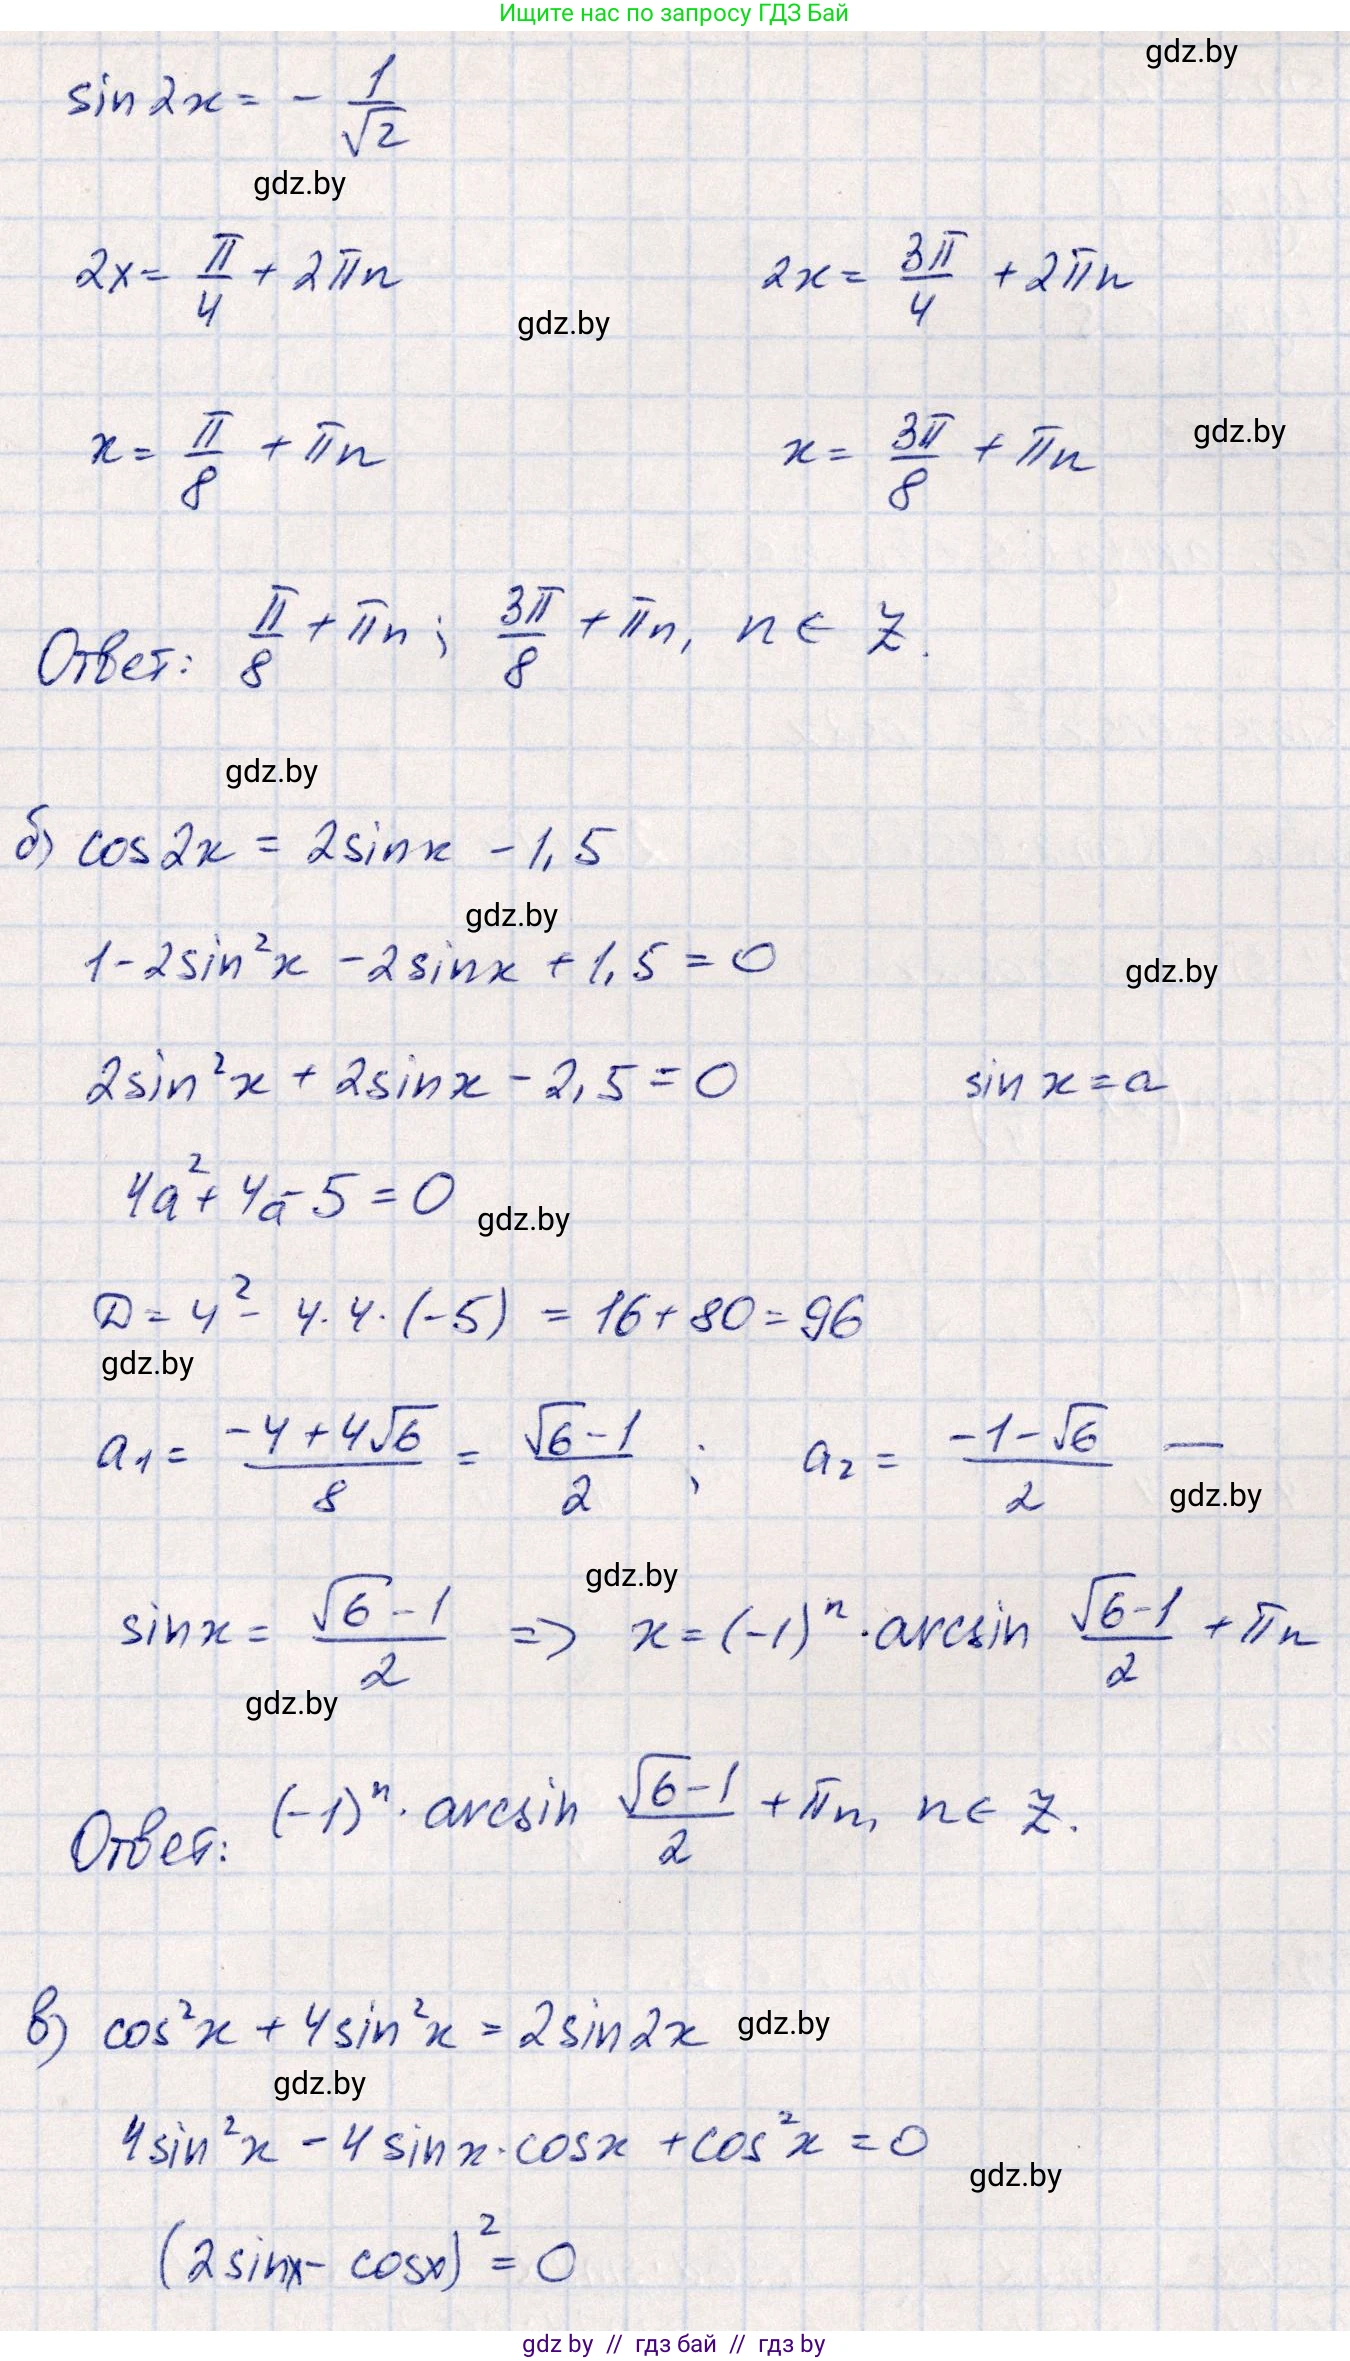 Ищите нас по запросу ГДЗ Бай
gdz.by
sin2x = - 1/√2
gdz.by
2x = π/4 + 2πn 2x = 3π/4 + 2πn
gdz.by
x = π/8 + πn x = 3π/8 + πn
gdz.by
Ответ: π/8 + πn; 3π/8 + πn, n ∈ Z.
gdz.by
б) cos2x = 2sinx - 1,5
gdz.by
1 - 2sin²x - 2sinx + 1,5 = 0
gdz.by
2sin²x + 2sinx - 2,5 = 0 sinx = a
4a² + 4a - 5 = 0
gdz.by
D = 4² - 4·4·(-5) = 16 + 80 = 96
gdz.by
a₁ = (-4 + 4√6)/8 = (√6 - 1)/2 ; a₂ = (-1 - √6)/2 —
gdz.by
gdz.by
sinx = (√6 - 1)/2 => x = (-1)ⁿ · arcsin (√6 - 1)/2 + πn
gdz.by
Ответ: (-1)ⁿ · arcsin (√6 - 1)/2 + πn, n ∈ Z.
в) cos²x + 4sin²x = 2sin2x
gdz.by
gdz.by
4sin²x - 4sinx·cosx + cos²x = 0
gdz.by
(2sinx - cosx)² = 0
gdz by // гдз бай // гдз by